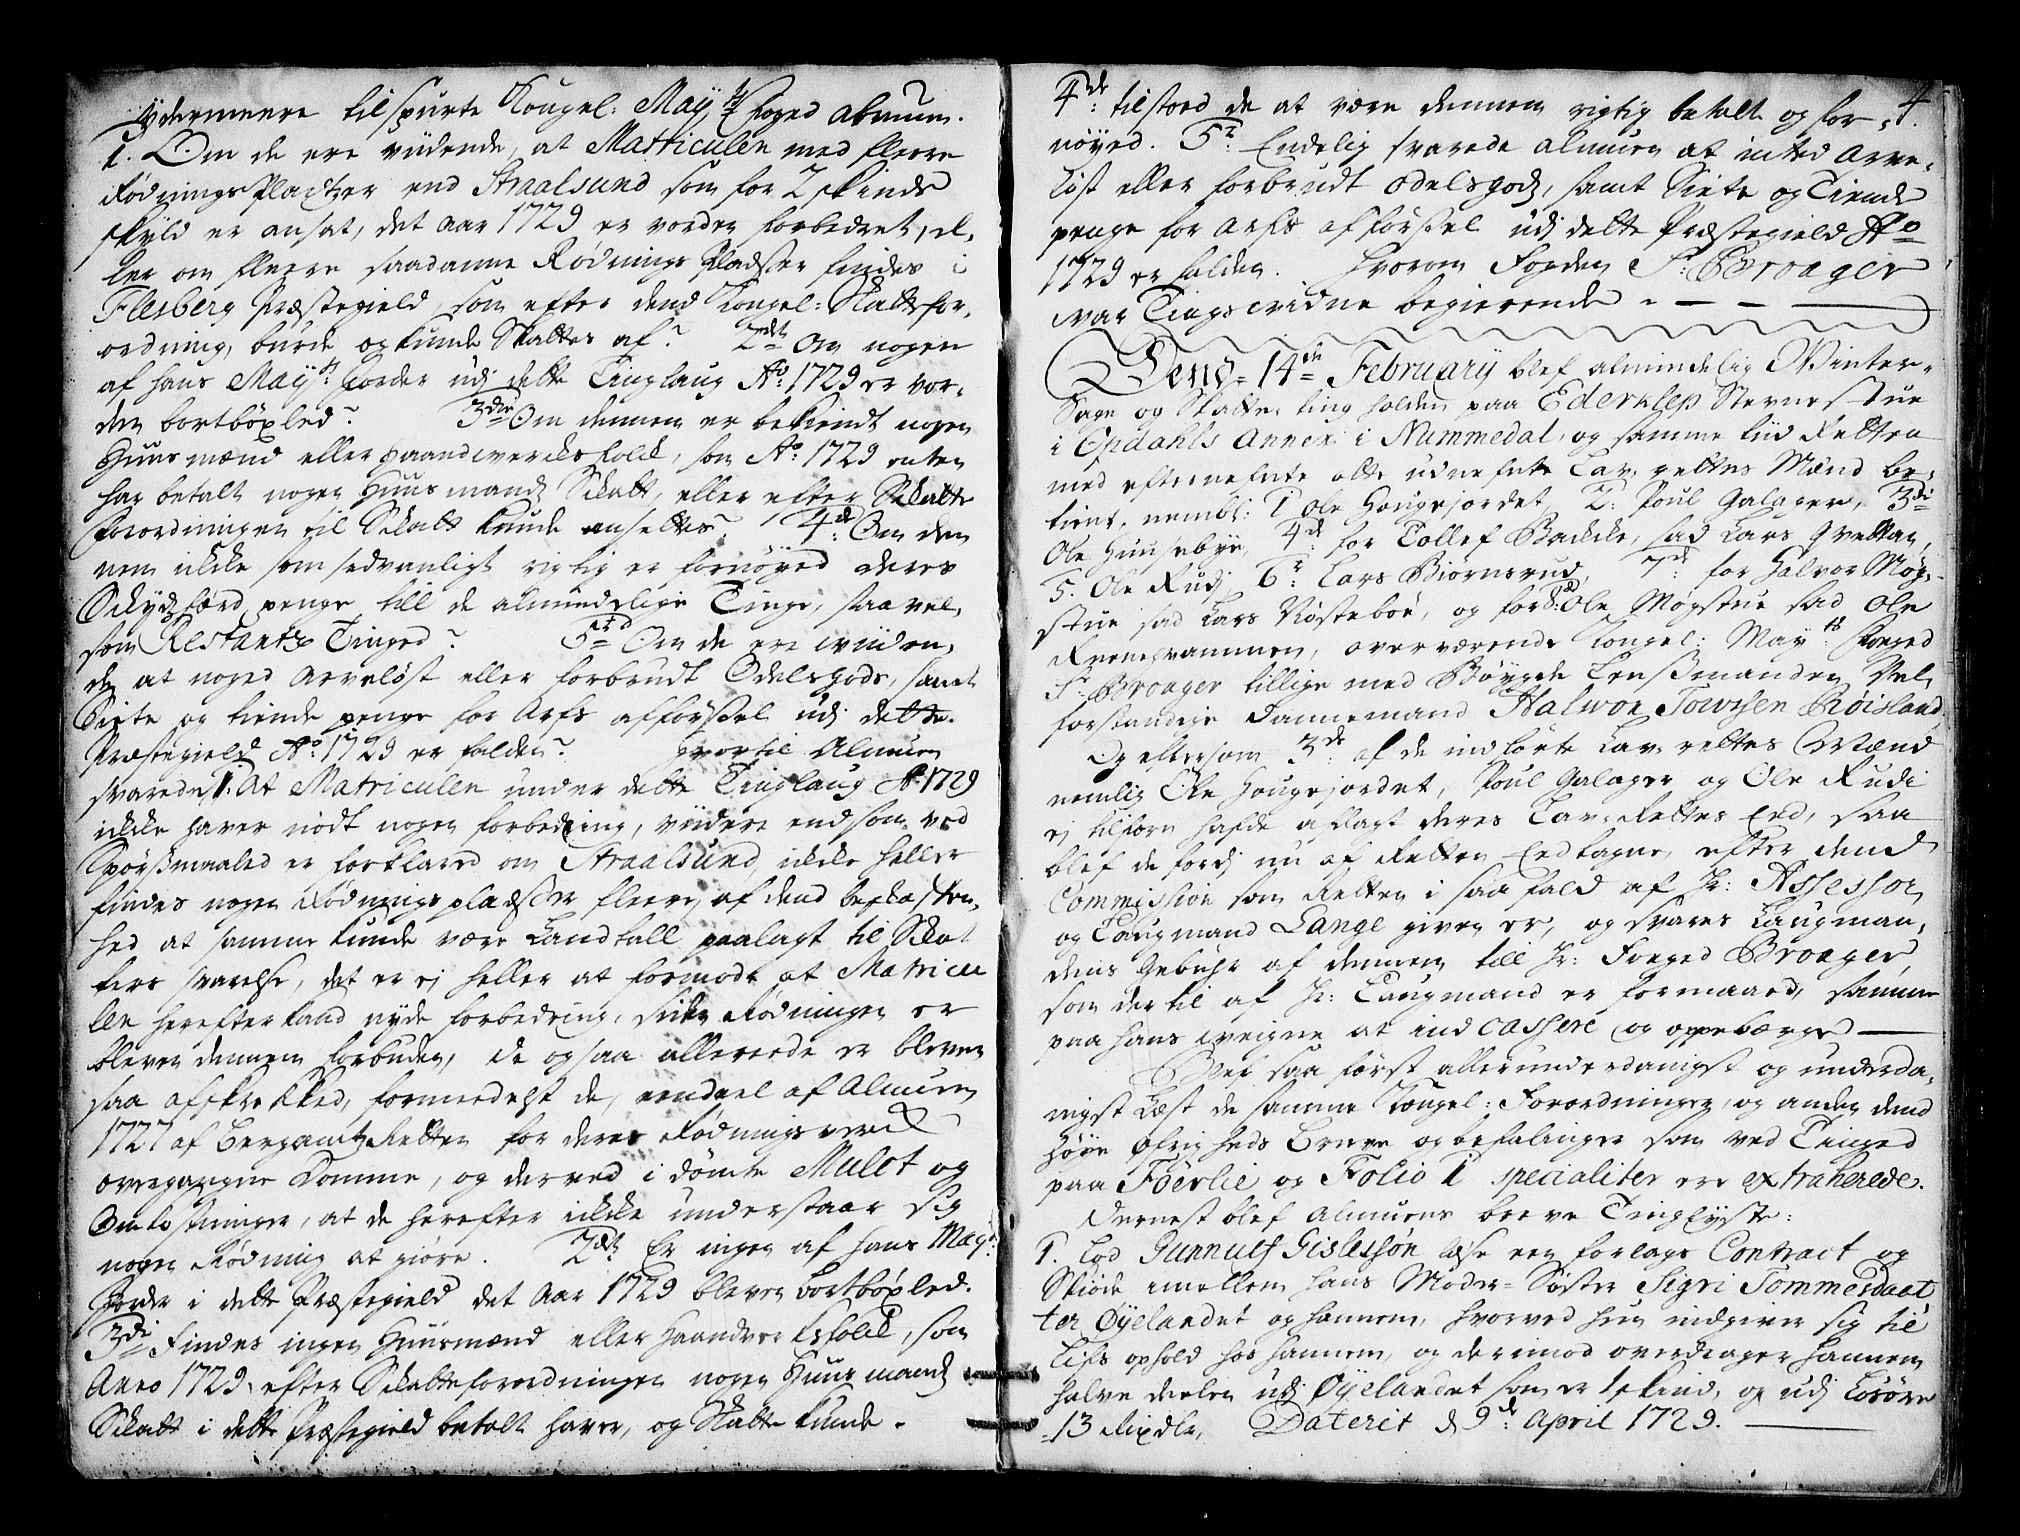 Ydermeere tilspurte Kongel: May.ts foged Almuen.
1. Om de ere viidende, at Matriculen med fleere
Rødnings Pladtzer end Straalsund som for 2 skinds
skyld er ansat, det aar 1729 er vorden forbedret, el,
ler om fleere saadanne Rødnings Pladser findes i
Flesberg Præstegield, som efter dend Kongel: Skatt for,
ordning, burde og kunde Skattes af? 2det Om nogen
af hans May.ts Gorder udj dette Tinglaug Ao: 1729 er vor,
den bortbøxled? 3die Om dennem er bekiendt nogen
Huusmænd eller haandværcksfolck, som Ao: 1729 enten
har betalt nogen Huusmands Skatt, eller efter Skatte
forordningen til Skatt kunde ansettes? 4de: Om den
nem icke som sedvanligt rigtig er fornøyed deres
Skydsfærd penge till de almindelige Tinge, saavel,
som Restantz Tinged? 5te Om de ere vviden,
de at noged Arveløst eller forbrudt Odelsgods, samt
Siete og tiende penge for Arfs afførsel udj dette
Præstegield Ao: 1729 er falden? Hvortil Almuen
svarede, 1. At Matriculen under dette Tinglaug Ao: 1729
icke haver nødt nogen forbedring, viidere end som ved
Spørsmaaled er forklared om Straalsund, icke heller
findes nogen Rødnings pladser fleere, af dend beskaffen,
hed at samme kunde være Landfall paalagt til Skat
ters svarelse, det er ej heller at formode at Matricu
len herefter kand nyde forbedring, siden Rødningen er
bleven dennem forbuden, de og saa allereede er bleven
saa afskrekked, formedelst de, eendeel af Almuen
1727 af Bergamtz Retten for deres Rødnings verck
overgangne Domme, og derved i dømte Mulct og
Omkostninger, at de herefter icke understaar sig
nogen Rødning at giøre. 2det Er ingen af hans May.ts
Gorder i dette Præstegield det Aar 1729 bleven bortbøxled.
3die Findes ingen Huusmænd eller Haandverksfolck, som
Anno 1729, efter Skatteforordningen nogen Huusmands
Skatt i dette Præstegield betalt haver, og Skatte kunde.
4
4de: tilstoed de at være dennem rigtig betalt og for,
nøyed. 5te: Endelig svarede Almuen at inted Arve,
løst eller forbrudt Odelsgods, samt Siete og Tiende
penge for Arfs afførsel udj dette Præstegield Ao
1729 er falden. Hvorom Fogden Sr: Broager
var Tingsvidne begierende.
Dend 14de February blef almindelig Vinter,
Sage og Skatte,ting holden paa Ederklep Stevnestue
i Opdahls Annex i Nummedal, og samme tiid Retten
med efternefnte otte udnefnte Lav,rettes Mænd be,
tient, nembl: 1 Ole Hougejordet, 2: Poul Galager, 3die
Ole Huusebye, 4de: for Tollef Backe, sad Lars Qvetten,
5. Ole Rudj, 6te: Lars Biørnsrud, 7de: for Halvor Møg,
stue sad Lars Nøsteboe, og for 8de: Ole Møgstue sad Ole
Kvernevammen, overværende Kongel: May.ts foeged
Sr: Broager tillige med Bøygde Lensmanden Vel,
forstandige Dannemand Halwor Towsen Røisland
Og eftersom 3de: af de indførte Lav,rettes Mænd
nemlig Ole Hougejordet, Poul Galager og Ole Rudi
ej tilforn hafde aflagt deres Lav,Rettes Eed, saa
blef de fordj nu af Retten Eedtagne, efter dend
Commission som Retten i saa fald af Hr: Assessor
og Laugmand Lange given er, og svares Laugman,
dens Gebuhr af dennem till Hr: Foeged Broager,
som dertil af Hr: Laugmand er formaaed, samme
paa hans veigne at indcassere og oppebærge
Blef saa først allerunderdanigst og underda,
nigst Læst de samme Kongel: Forordninger, og anden dend
høye Øfrigheds Breve og befalinger som ved Tinged
paa Føerlie og Folio 1 specialiter ere extraherede.
Dernest blef Almuens breve Tinglyste:
1. Lod Gunnulf Gislessøn læse een forlags Contract og
Skiøde imellem hans Moder-Søster Sigri Tommesdaat
ter Øyelandet og hannem, hvorved hun indgiver sig til
Lifs ophold hos hannem, og derimod overdrager hannem
halve deelen udj Øyelandet som er 1 skind, og udj Løsøre
13 Rixdlr, Daterit d 9de: April 1729.